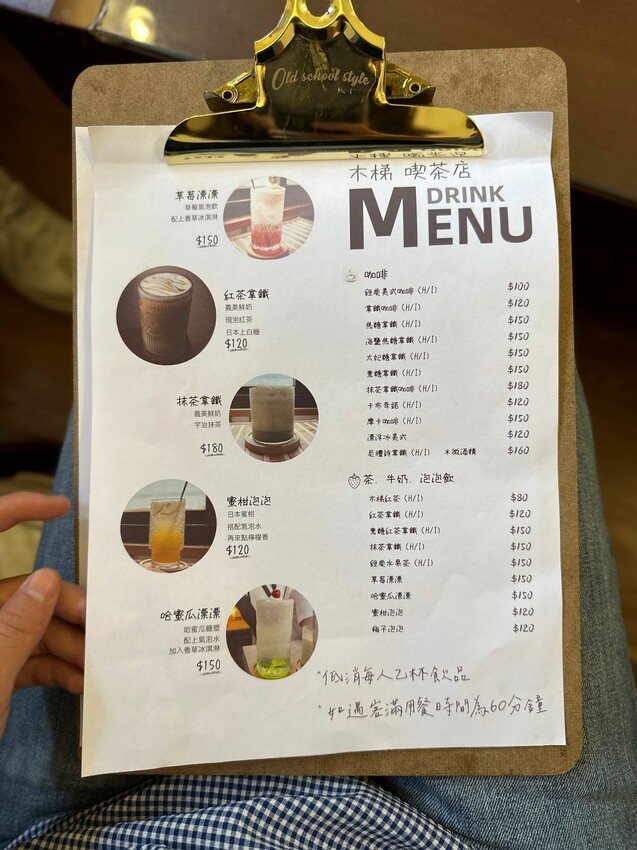 Old school style
木梯 喫茶店
DRINK
MENU
草莓漂漂
草莓氣泡飲
配上香草冰淇淋
$150
紅茶拿鐵
義美鮮奶
現泡紅茶
日本上白糖
$120
抹茶拿鐵
義美鮮奶
宇治抹茶
$180
蜜柑泡泡
日本蜜柑
搭配氣泡水
再來點檸檬香
$120
哈蜜瓜漂漂
哈蜜瓜糖漿
配上氣泡水
加入香草冰淇淋
$150
咖啡
經典美式咖啡 (H/I) $100
拿鐵咖啡 (H/I) $120
焦糖拿鐵 (H/I) $150
海鹽焦糖拿鐵 (H/I) $150
太妃糖拿鐵 (H/I) $150
黑糖拿鐵 (H/I) $150
抹茶拿鐵咖啡 (H/I) $180
卡布奇諾 (H/I) $120
摩卡咖啡 (H/I) $150
漂浮冰美式 $120
貝禮詩拿鐵 (H/I) *微酒精 $160
茶、牛奶、泡泡飲
木梯紅茶 (H/I) $80
紅茶拿鐵 (H/I) $120
黑糖紅茶拿鐵 (H/I) $150
抹茶拿鐵 (H/I) $150
經典水果茶 (H/I) $150
草莓漂漂 $150
哈蜜瓜漂漂 $150
蜜柑泡泡 $120
梅子泡泡 $120
*低消每人乙杯飲品
*如遇客滿用餐時間為60分鐘